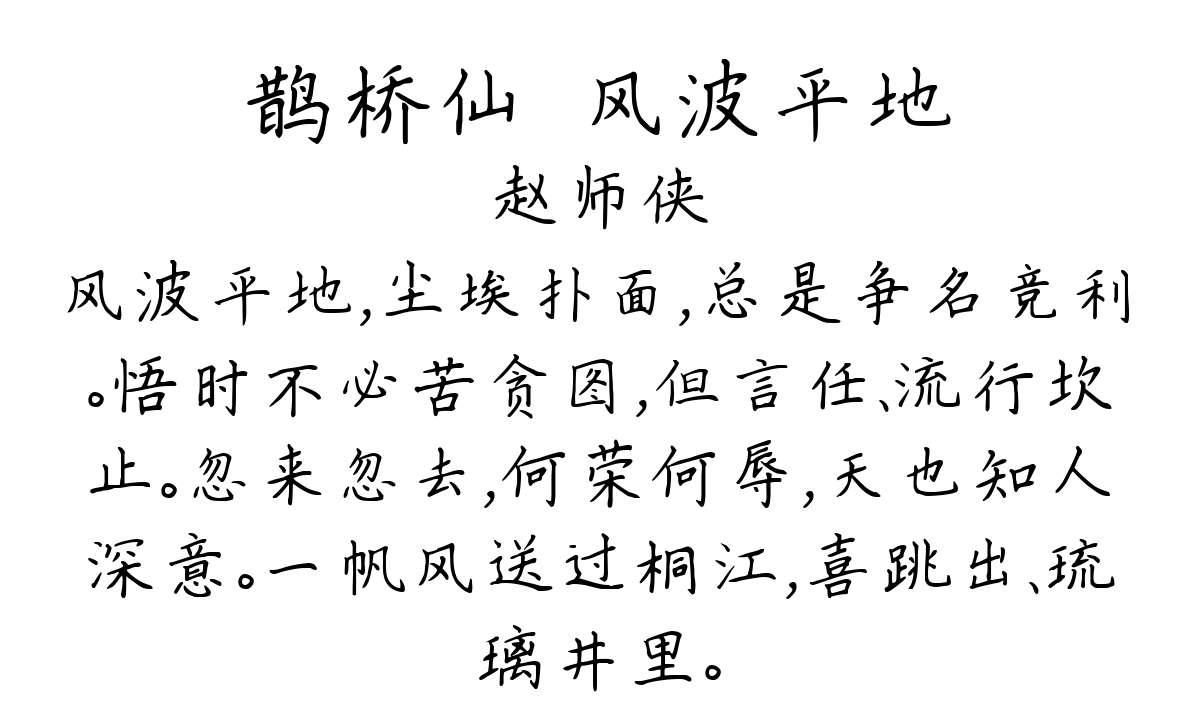 鹊桥仙 风波平地
赵师侠
风波平地,尘埃扑面,总是争名竞利
。悟时不必苦贪图,但言任、流行坎
止。忽来忽去,何荣何辱,天也知人
深意。一帆风送过桐江,喜跳出、琉
璃井里。